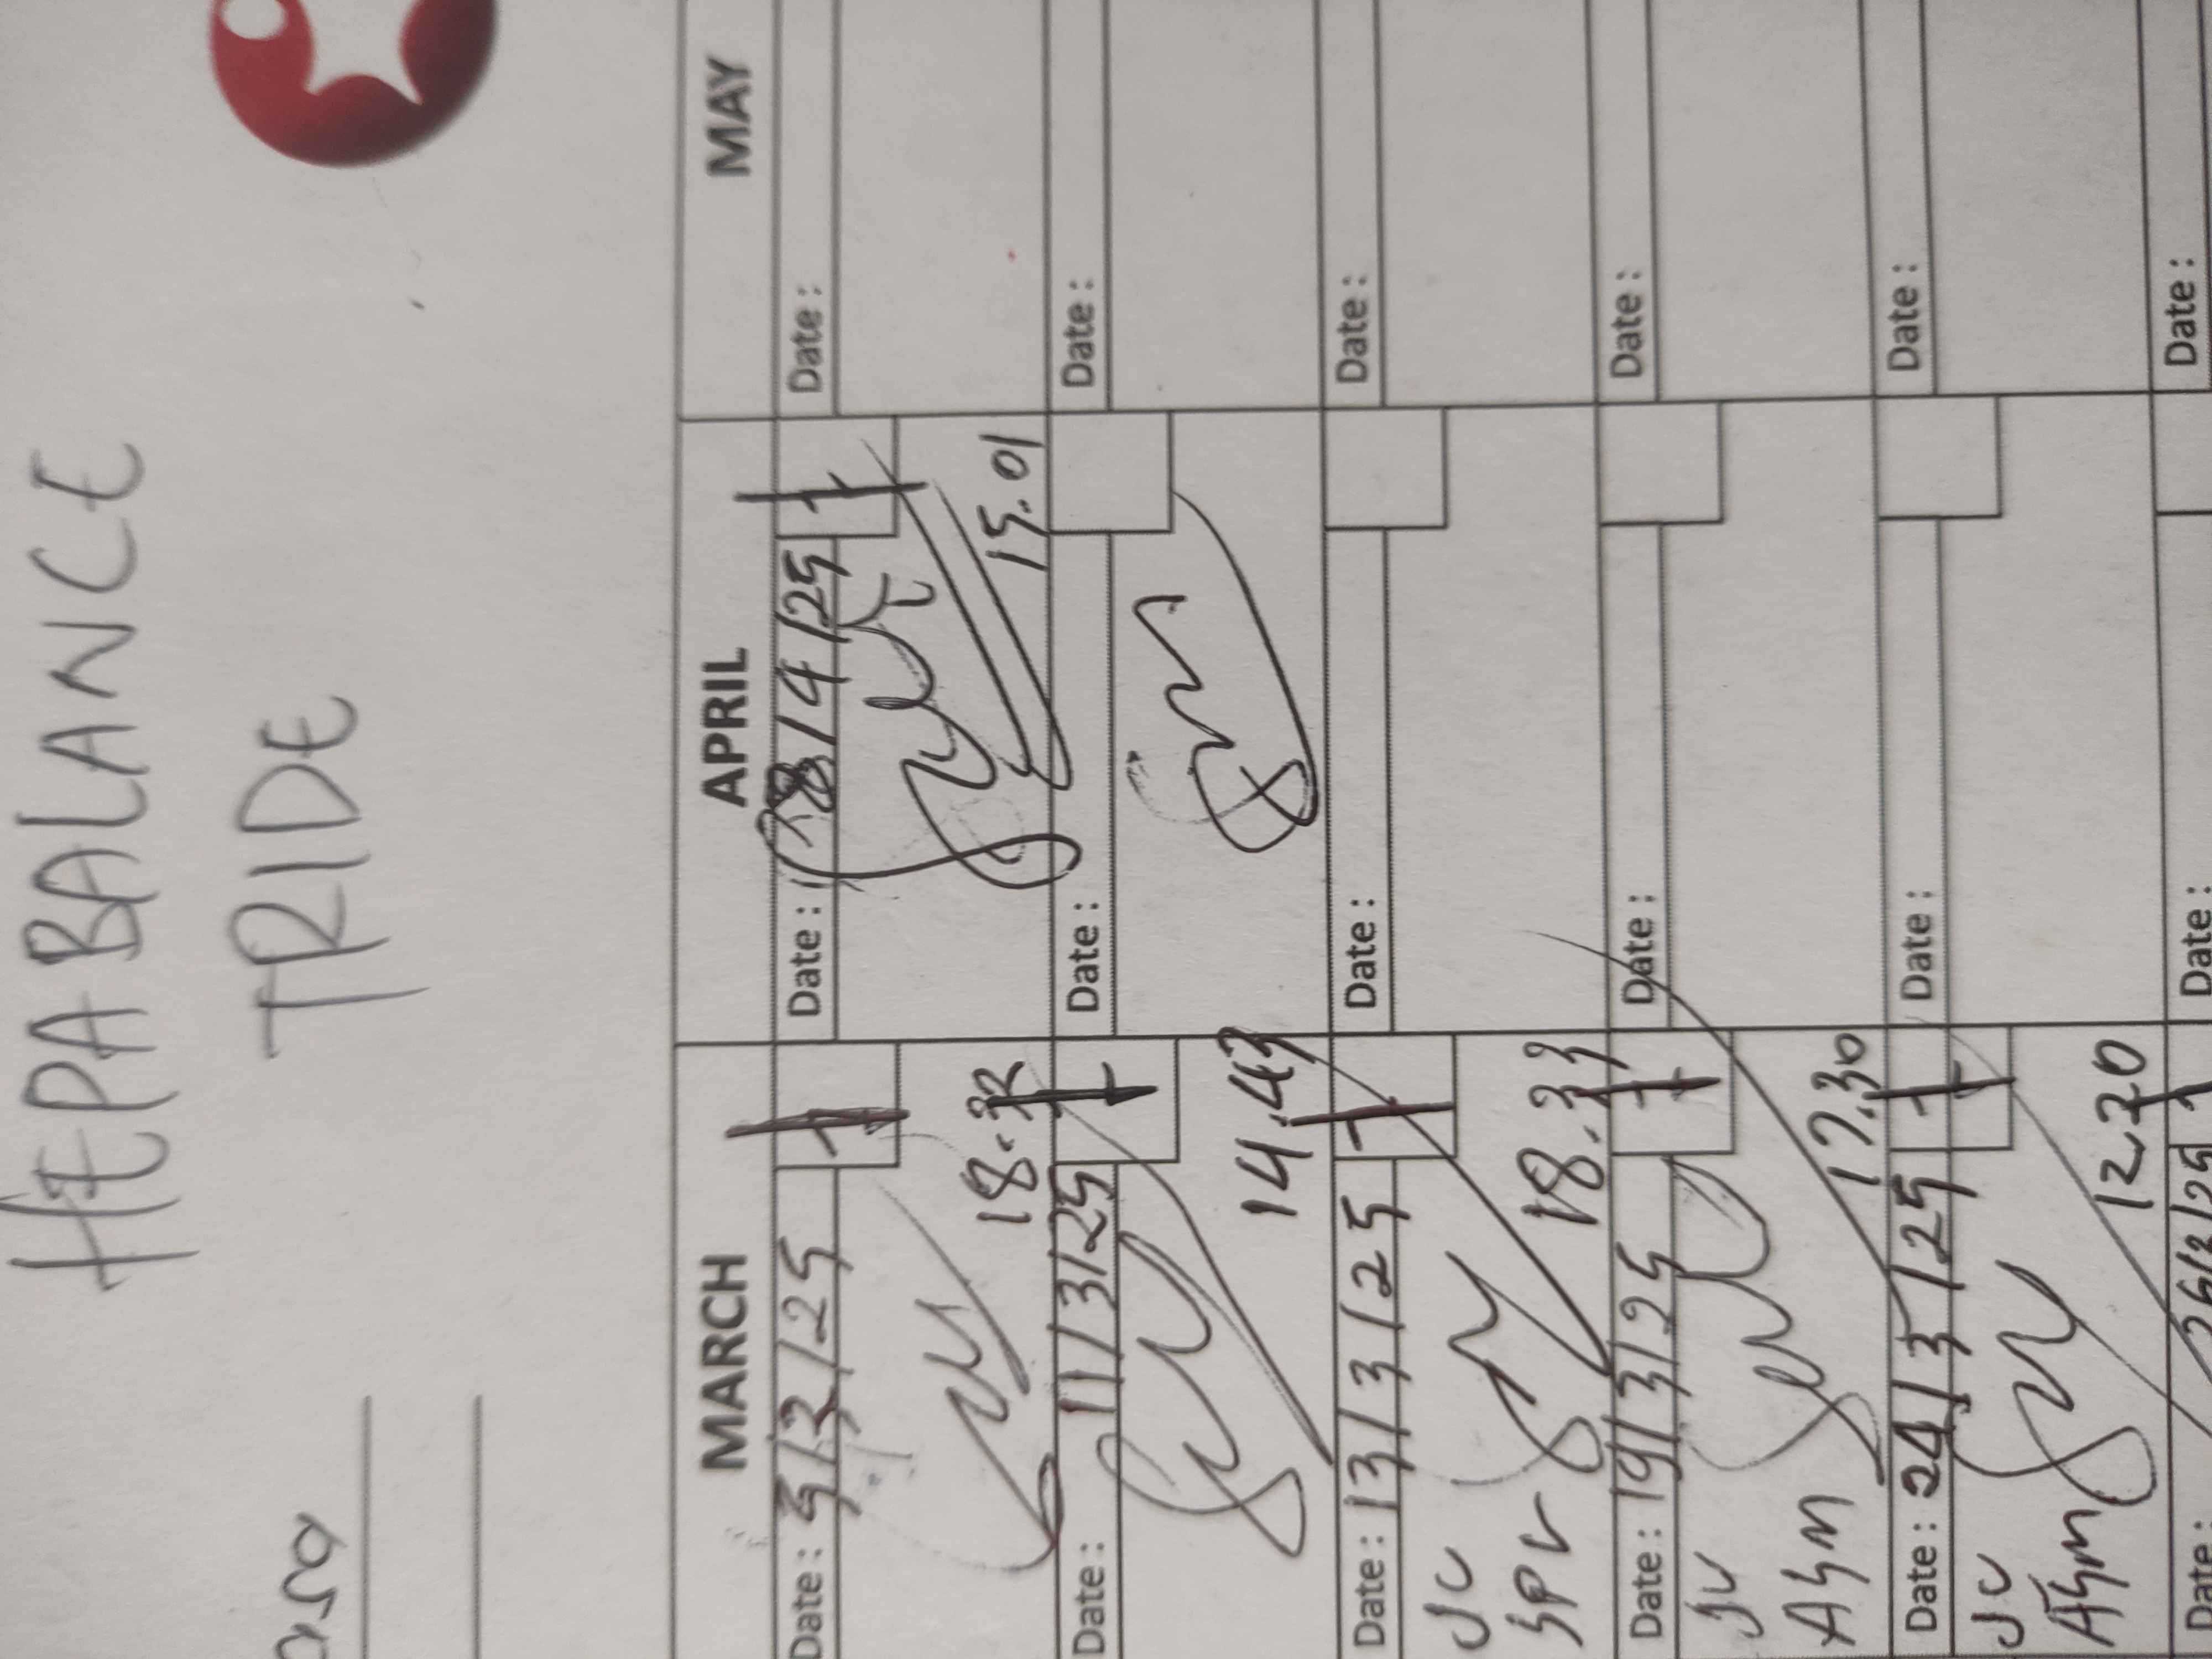 HEPA BALANCE
TRIDE
MARCH APRIL MAY
Date: 5/3/25 1 Date: 8/4/25 1 Date:
18.32 15.01
Date: 11/3/25 Date: Date:
14.43
Date: 13/3/25 1 Date: Date:
JC
SPV
18.33
Date: 19/3/25 1 Date: Date:
Asm
17.30
Date: 24/3/25 1 Date: Date:
JC
Asm
12.20
Date: Date: Date: